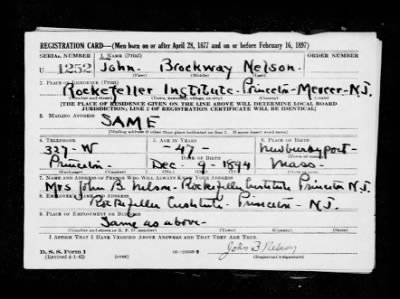 REGISTRATION CARD—(Men born on or after April 28, 1877 and on or before February 16, 1897)
SERIAL NUMBER 1. NAME (Print) ORDER NUMBER
U 1252 John Brockway Nelson
(First) (Middle) (Last)
2. PLACE OF RESIDENCE (Print)
Rockefeller Institute - Princeton - Mercer - N.J.
(Number and street) (Town, township, village, or city) (County) (State)
[THE PLACE OF RESIDENCE GIVEN ON THE LINE ABOVE WILL DETERMINE LOCAL BOARD
JURISDICTION; LINE 2 OF REGISTRATION CERTIFICATE WILL BE IDENTICAL]
3. MAILING ADDRESS
SAME
[Mailing address if other than place indicated on line 2. If same insert word same]
4. TELEPHONE 5. AGE IN YEARS 6. PLACE OF BIRTH
337-W -47- Newburyport -
DATE OF BIRTH
Princeton - Dec - 9 - 1894 Mass -
7. NAME AND ADDRESS OF PERSON WHO WILL ALWAYS KNOW YOUR ADDRESS
Mrs John B. Nelson - Rockefeller Institute Princeton N.J.
8. EMPLOYER'S NAME AND ADDRESS
Rockefeller Institute - Princeton - N.J.
9. PLACE OF EMPLOYMENT OR BUSINESS
Same as above -
(Number and street or R. F. D. number) (Town) (County) (State)
I AFFIRM THAT I HAVE VERIFIED ABOVE ANSWERS AND THAT THEY ARE TRUE.
D. S. S. Form 1
(Revised 4-1-42) John B Nelson